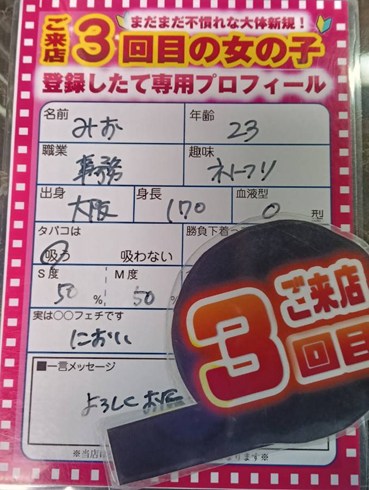 まだまだ不慣れな大体新規！
ご来店3回目の女の子
登録したて専用プロフィール
名前 みお 年齢 23
職業 事務 趣味 ネトフリ
出身 大阪 身長 170 血液型 O 型
タバコは 勝負下着
吸う 吸わない
S度 50 % M度 50 %
実は○○フェチです
におい
■一言メッセージ
よろしくお
ご来店
3回目
※当店に
ります※